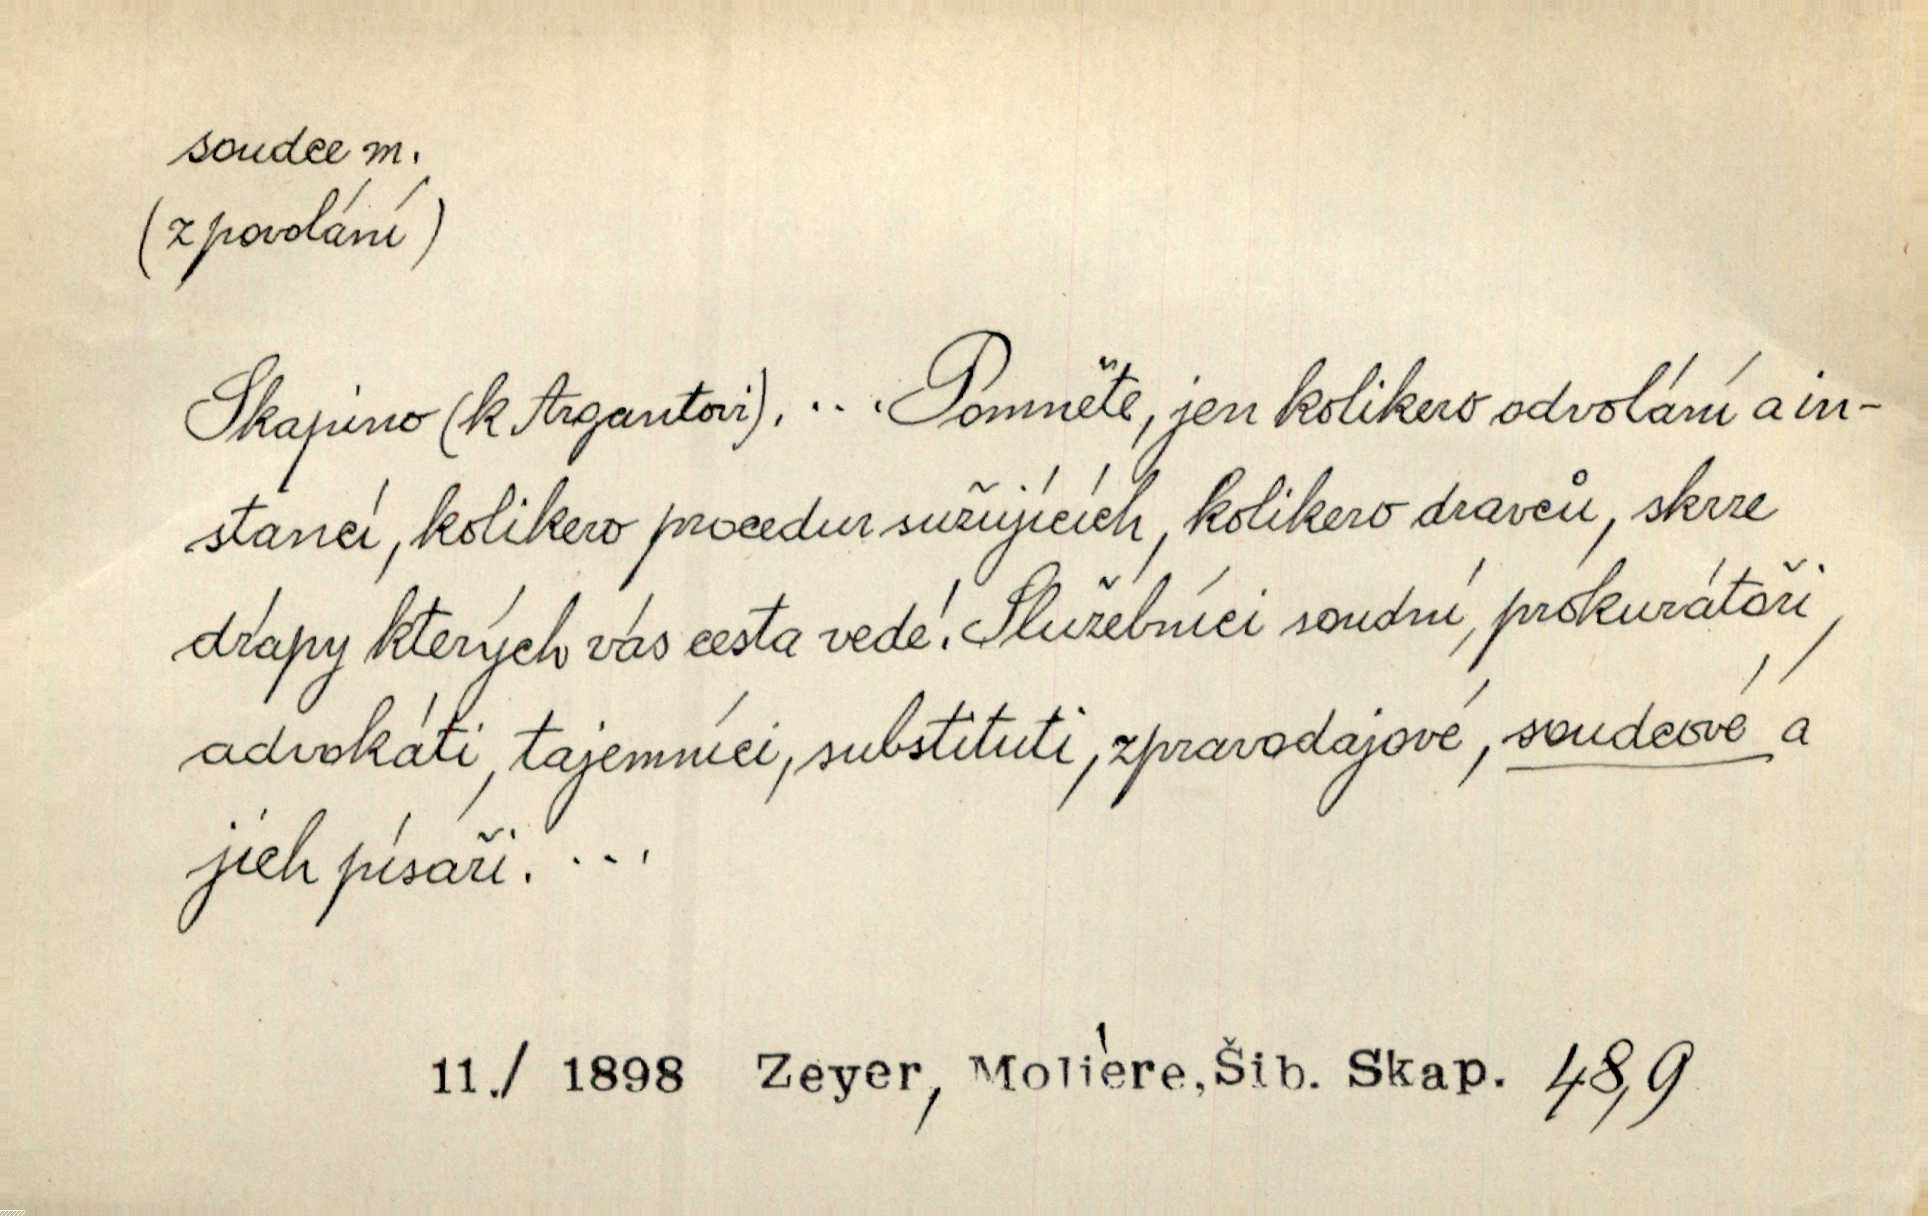 soudce m.
(z povolání)
Skapino (k Argantovi). ... Pomněte, jen kolikero odvolání a in-
stancí, kolikero procedur sužujících, kolikero dravců, skrze
drápy kterých vás cesta vede! Služebníci soudní, prokurátoři,
advokáti, tajemníci, substituti, zpravodajové, soudcové a
jich písaři. ...
11./ 1898 Zeyer, Molière, Šib. Skap. 48,9